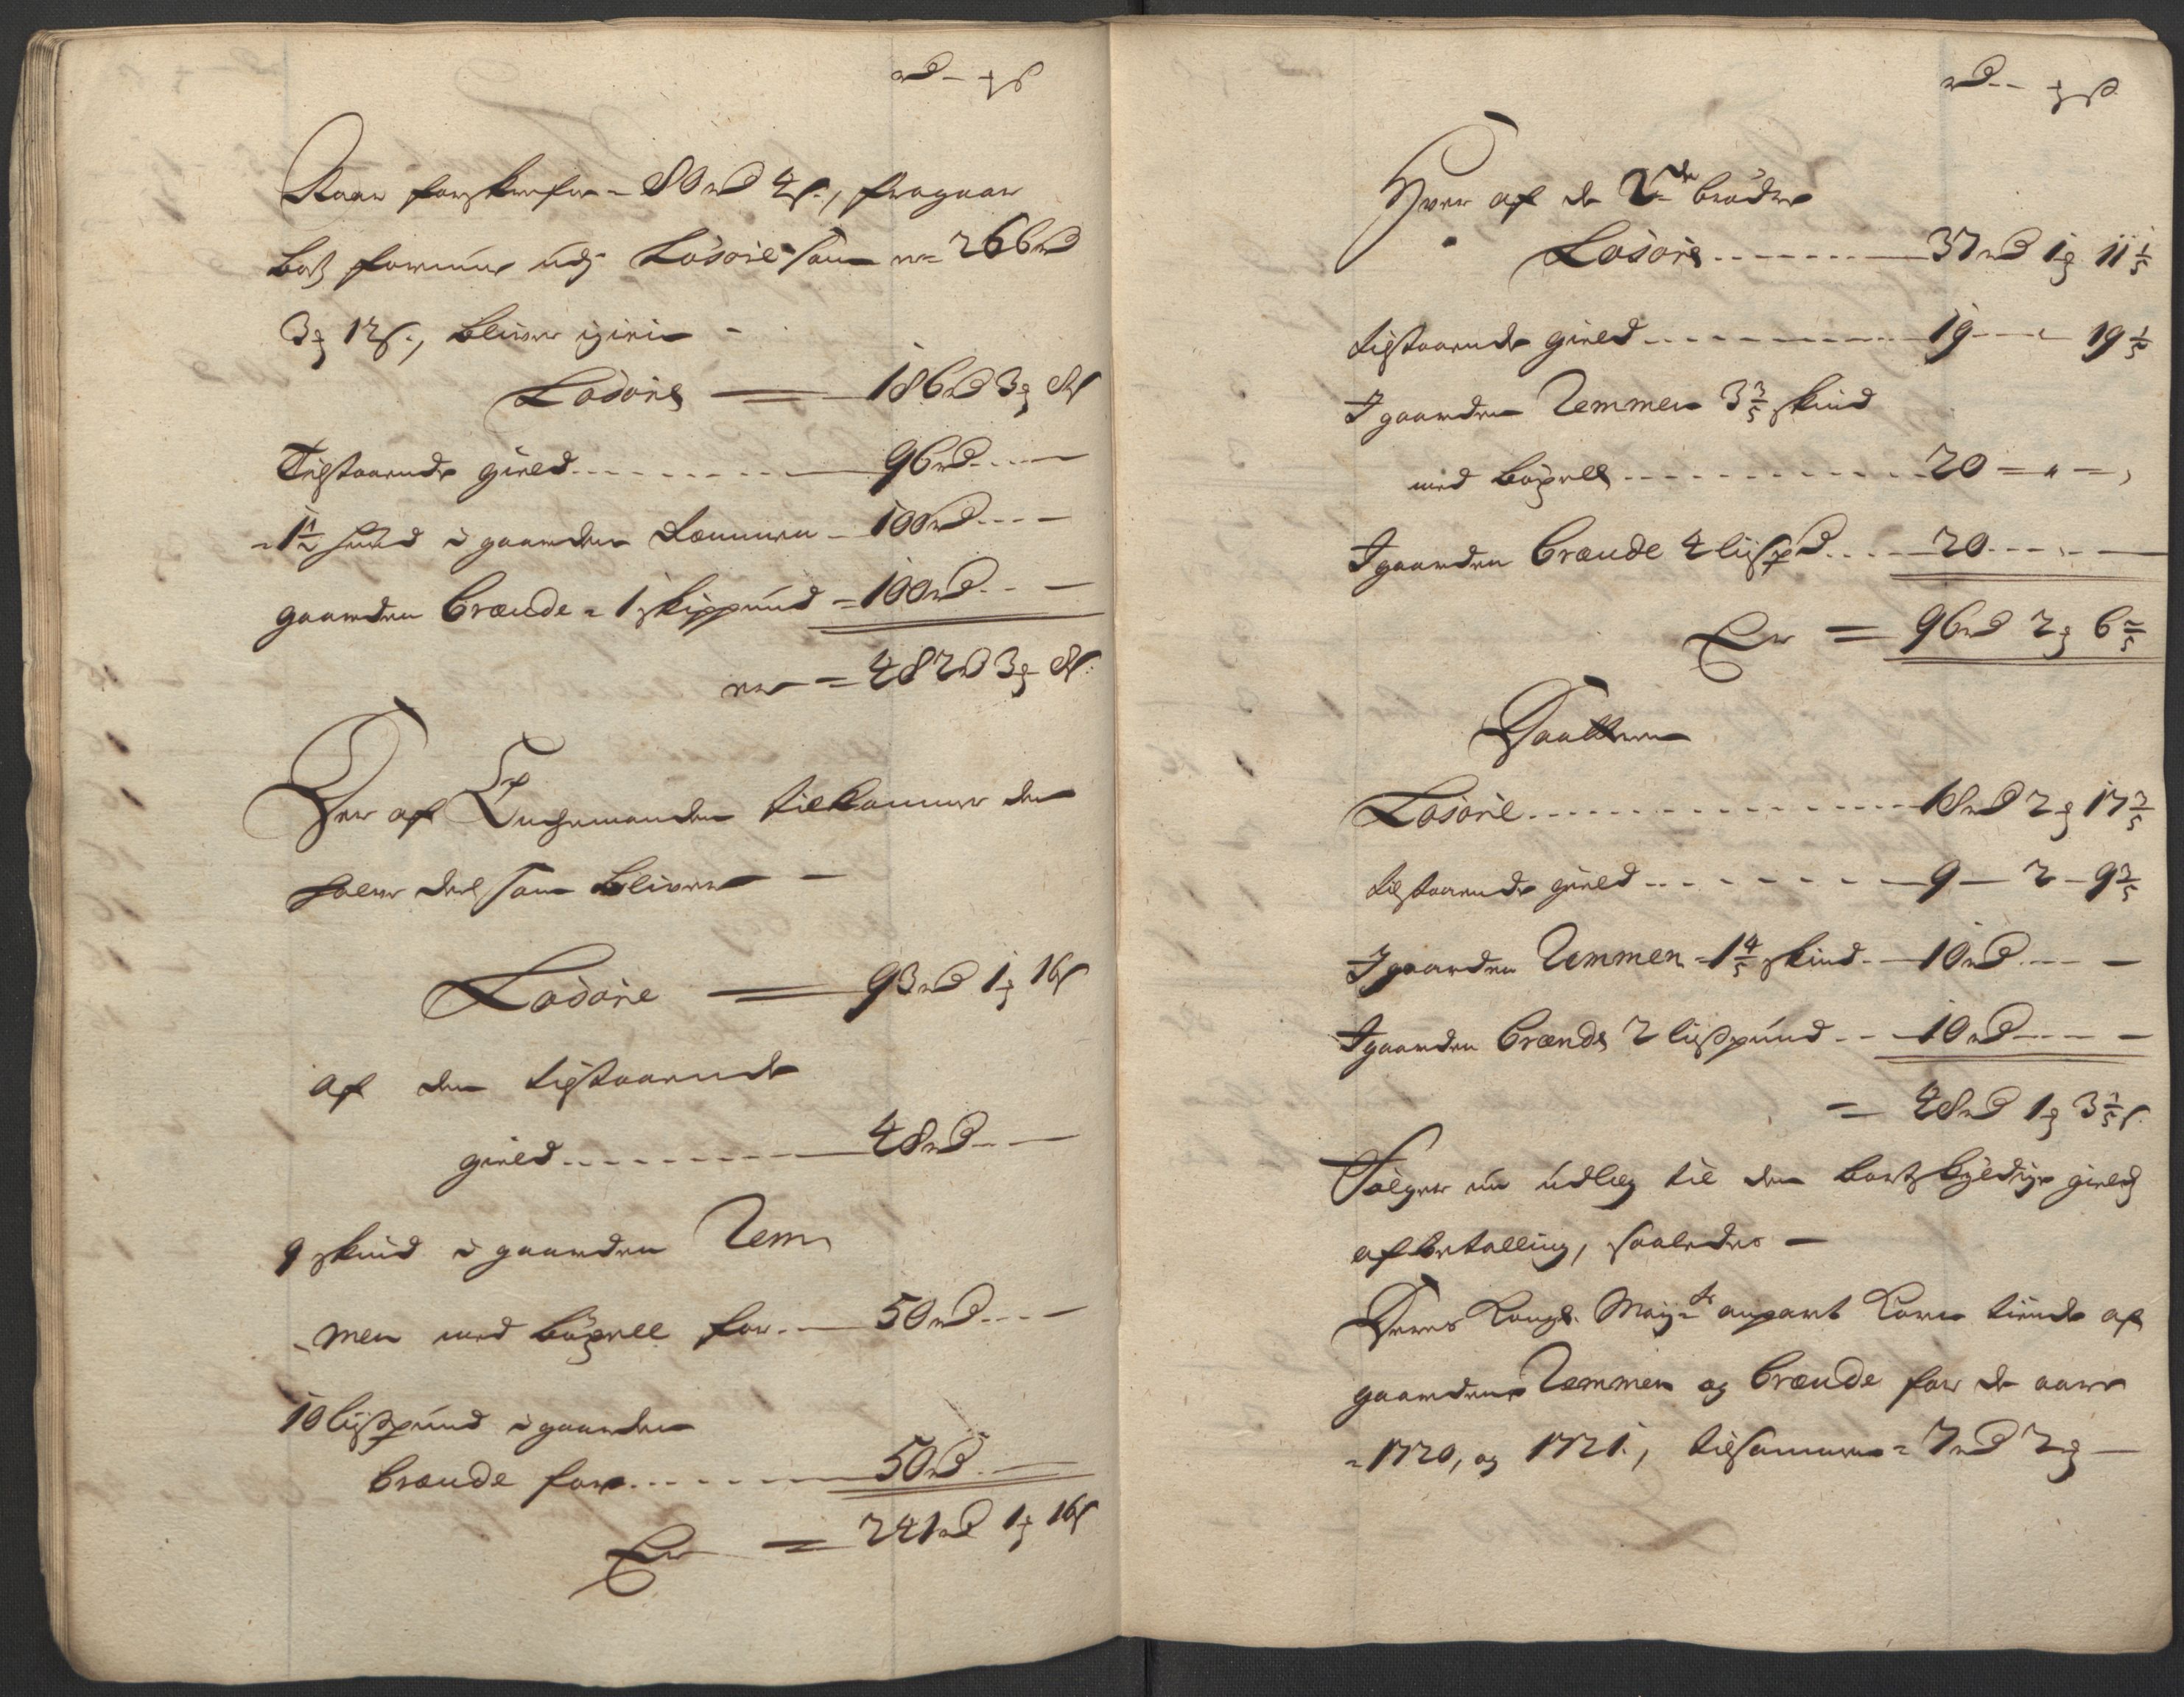 rd – ꝑ ß
Naar forskrefne = 80 rd 4 ß., fragaar
boets formue udj Løsøre som er = 266 rd
3 ꝑ 12 ß., bliver igien –
Løsøre = 186 rd 3 ꝑ 8 ß
Tilstaaende gield ......... 96 rd ....
= 1 1/2 huud i gaarden Lemmen – 100 rd ....
gaarden Brænde = 1 skippund = 100 rd ...
er = 482 rd 3 ꝑ 8 ß.
Der af Enchemanden tilkommer den
halve deel som bliver –
Løsøre = 93 rd 1 ꝑ 16 ß
af den tilstaaende
gield ......... 48 rd ...
9 skind i gaarden Lem
men med bøxell for .. 50 rd ....
10 lispund i gaarden
Brænde for ...... 50 rd ...
Er = 241 rd 1 ꝑ 16 ß
rd – ꝑ ß
Hver af de 2de brødre
Løsøre ....... 37 rd 1 ꝑ 11 1/5
tilstaaende gield ......... 19 – " – 19 1/5
I gaarden Lemmen 3 3/5 skind
med bøxell ......... 20 – " – "
I gaarden Brænde 4 lispd .... 20 ....
Er = 96 rd 2 ꝑ 6 2/5
Daatteren
Løsøre ......... 18 rd 2 ꝑ 17 3/5
tilstaaende gield ........ 9 – 2 – 9 3/5
I gaarden Lemmen = 1 4/5 skind .. 10 rd ....
I gaarden Brænde 2 lispund .. 10 rd ....
= 48 rd 1 ꝑ 3 1/5 ß.
Følger nu udlæg til den bortskyldige gields
afbetalling, saaledes –
Deres Kongl. Maytz anpart Korn tiende af
gaardene Lemmen og Brænde for de aar
= 1720, og 1721., tilsammen = 7 rd 2 ꝑ –